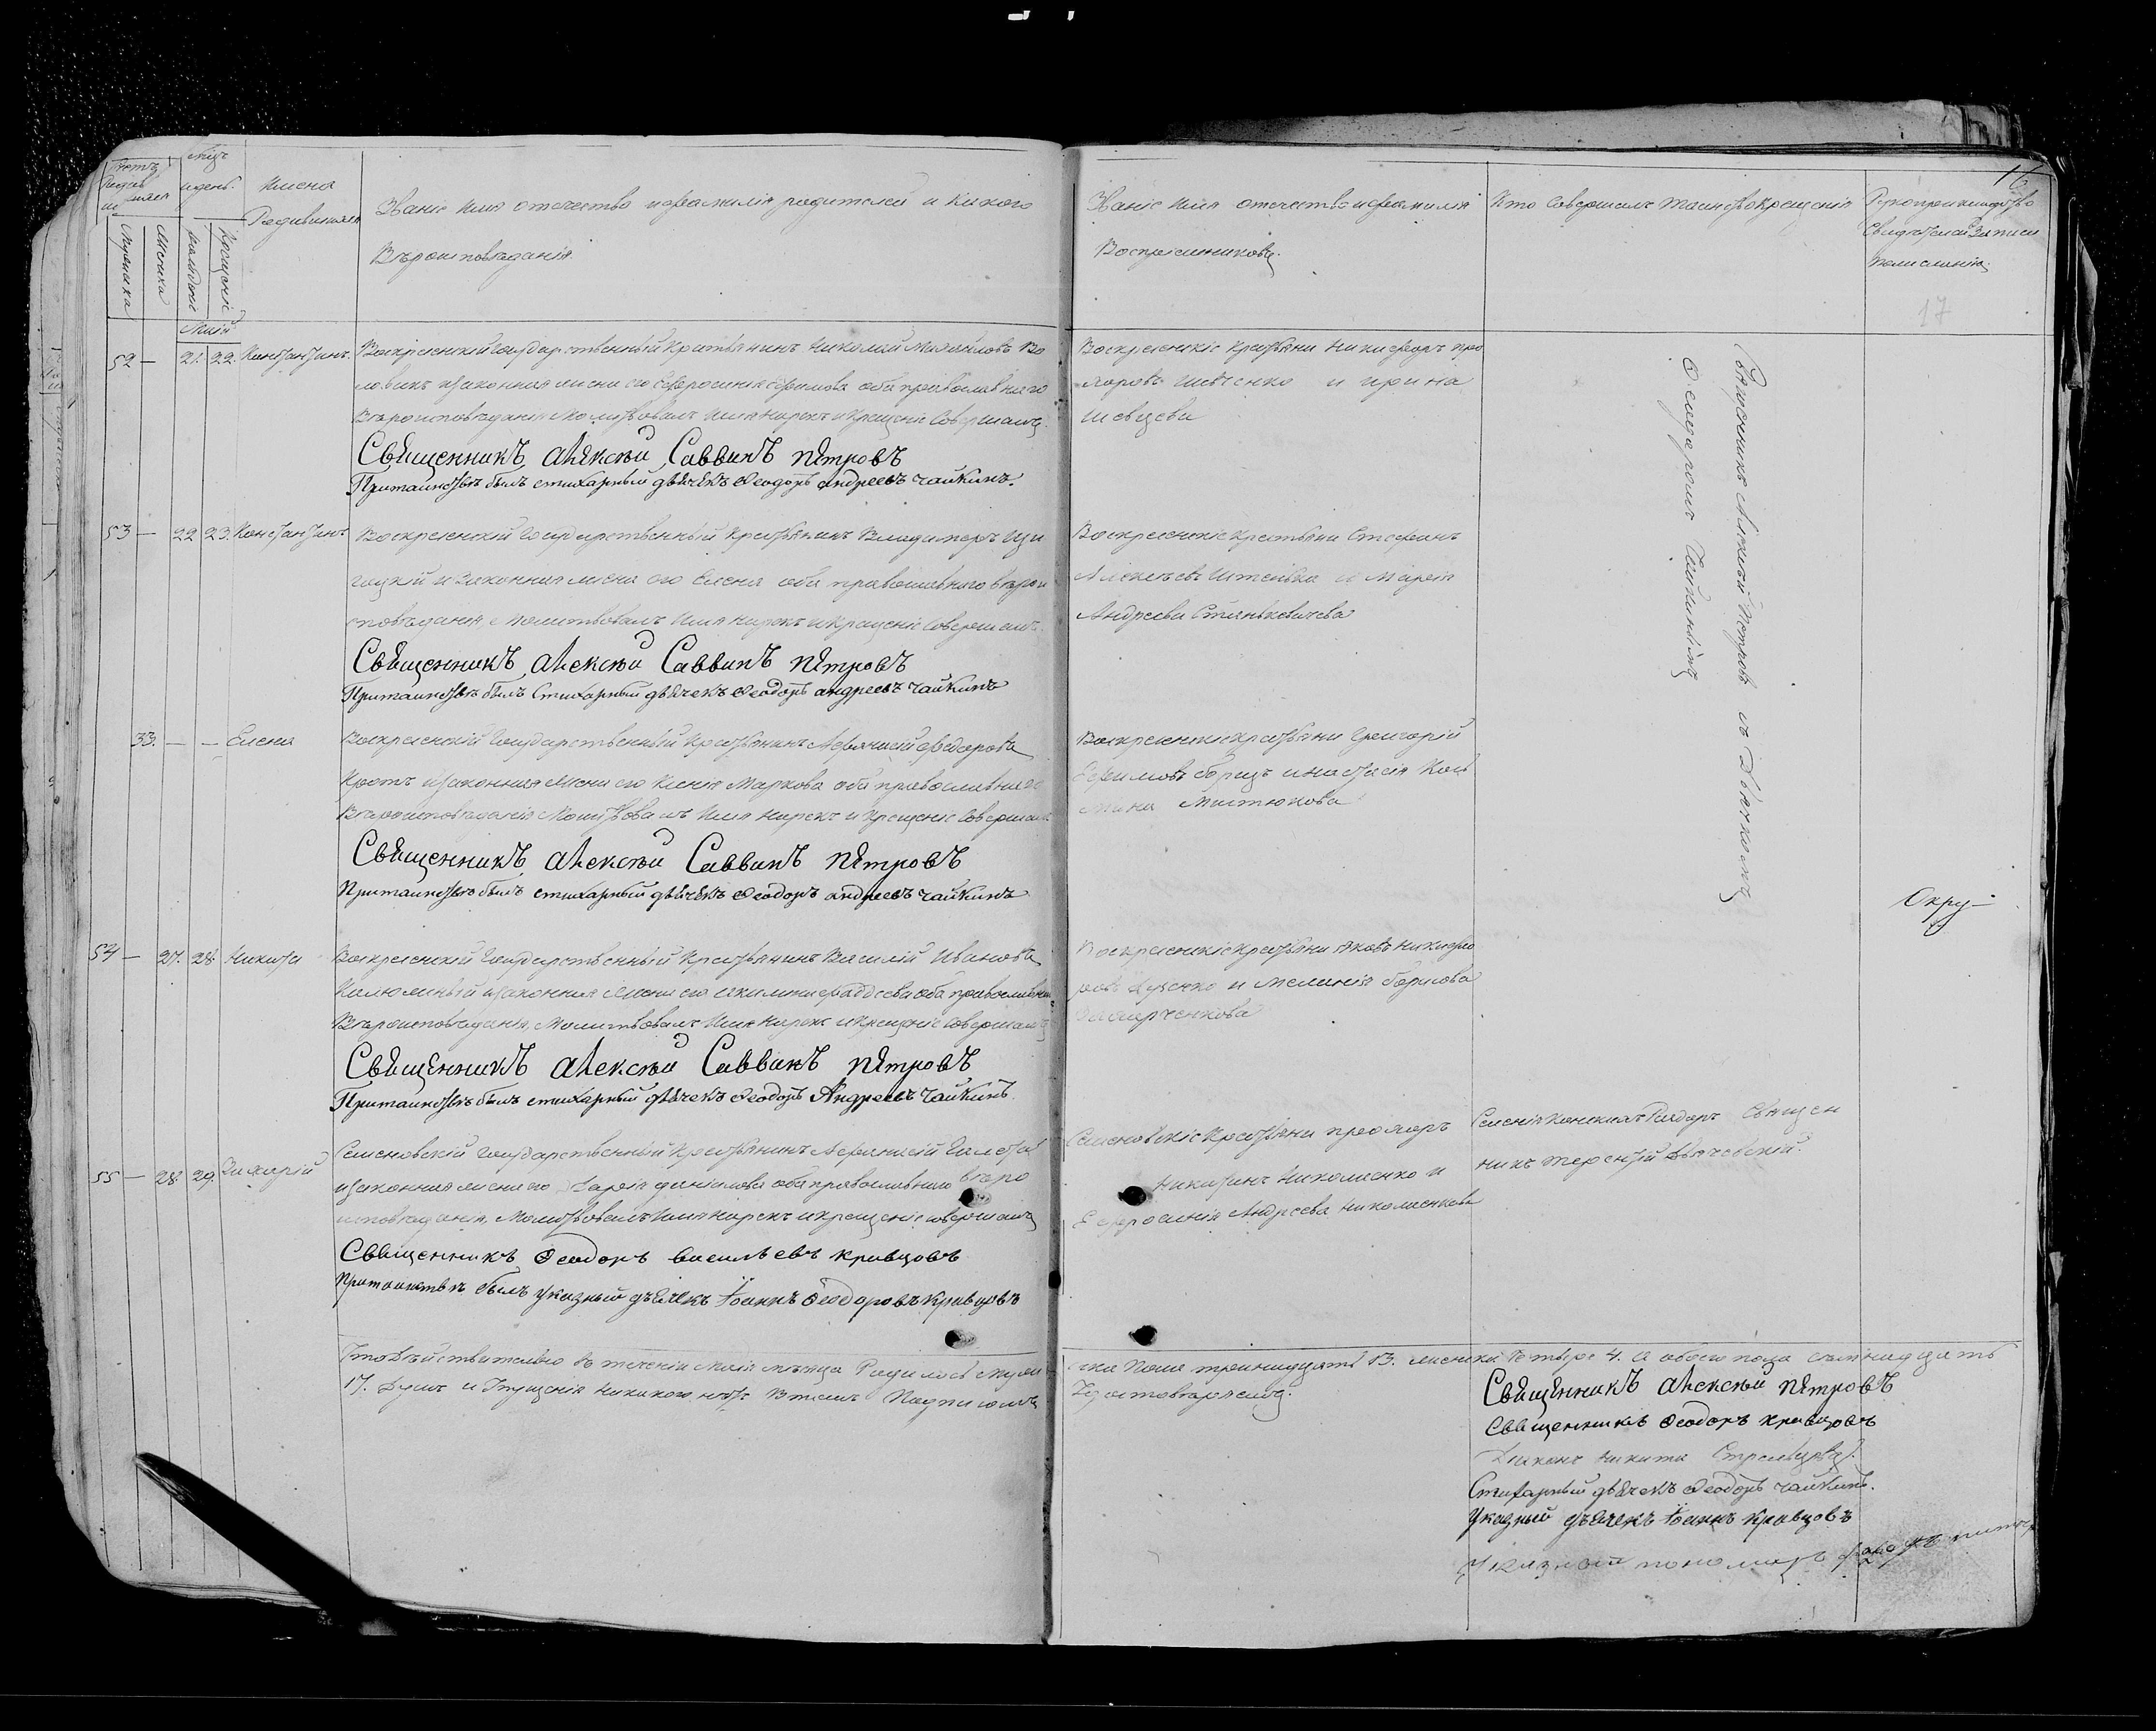 16
Счетъ
родив
шихся
Мцъ
и день.
Имена
Родившихся
Званіе Имя отечество и фамилія родителей и Какого
Вѣроисповѣданія
Званіе Имя отечество и фамилія
Воспріемниковъ.
Кто Совершалъ Таинство Крещенія
Рукоприкладство
Свидѣтелей Записи
По желанію
17
Мужеска
Женска
рожденія
Крещенія
Маій
52 — 21. 22. Константинъ.
Воскресенскій Государственный Крестьянинъ Николай Михайловъ Во
ловикъ и законная жена его Евфросинія Ефимова оба православнаго
Вѣроисповѣданія Молитвовалъ Имя нарекъ и Крещеніе Совершалъ
Священникъ Алексѣй Саввинъ Петровъ
При таинствѣ былъ стихарный дьячекъ Ѳеодоръ Андреевъ Чайкинъ.
Воскресенскіе Крестьяни Никифоръ Про
хоровъ Шевченко и Ирина
Шевцева
Священникъ Алексѣй Петровъ съ Дьячкомъ
Ѳеодоромъ Чайкинымъ
53 — 22 23. Константинъ
Воскресенскій Государственный Крестьянинъ Владимеръ
и Законная жена его Елена оба православнаго вѣрои
сповѣданія, Молитвовалъ Имя нарекъ и Крещеніе Совершалъ
Священникъ Алексѣй Саввинъ Петровъ
При таинствѣ былъ Стихарный дьячекъ Ѳеодоръ Андреевъ Чайкинъ
Воскресенскіе Крестьяни Стефанъ
Алексѣевъ и Марія
Андреева Станкевичева
33. — — Елена
Воскресенскій Государственный Крестьянинъ Афанасій Федоровъ
и законная Жена его Ксенія Маркова оба православнаго
Вѣроисповѣданія Молитвовалъ Имя нарекъ и Крещеніе Совершалъ
Священникъ Алексѣй Саввинъ Петровъ
При таинствѣ былъ стихарный дьячекъ Ѳеодоръ Андреевъ Чайкинъ
Воскресенскіе Крестьяни Григорій
Ефимовъ и настасія
Окру—
54 — 27. 28. Никита
Воскресенскій Государственный Крестьянинъ Василій Ивановъ
и законная Жена его оба православнаго
Вѣроисповѣданія, Молитвовалъ Имя Нарекъ и Крещеніе Совершалъ
Священникъ Алексѣй Саввинъ Петровъ
При таинствѣ былъ стихарный дьячекъ Ѳеодоръ Андреевъ Чайкинъ.
Воскресенскіе Крестьяни Яковъ Никифо
ровъ и Меланія Борисова
55 — 28. 29. Захарій
Семеновскій Государственный Крестьянинъ Афанасій
и законная жена его Дарія Даніилова оба православнаго вѣро
исповѣданія, Молитвовалъ Имя нарекъ и крещеніе совершалъ
Священникъ Ѳеодоръ Васильевъ Кравцовъ
При таинствѣ былъ указный дьячекъ Іоаннъ Ѳеодоровъ Кравцовъ
Семеновскіе Крестьяни Прохоръ
Никитинъ Николенко и
Евфросинія Андреева Николенкова
Священ
никъ
Что Дѣйствительно въ теченіи Маія мѣсяца Родилось мужес
ска Пола тринадцать 13. женска Четыре 4. А обоего пола семнадцать
17. Душъ и Упущенія никакого нѣтъ В томъ Подписомъ
Удостовѣряемъ.
Священникъ Алексѣй Петровъ
Священникъ Ѳеодоръ Кравцовъ
Діаконъ Никита Стрельцовъ.
Стихарный дьячекъ Ѳеодоръ Чайкинъ.
Указный дьячекъ Іоаннъ Кравцовъ
Указной пономарь